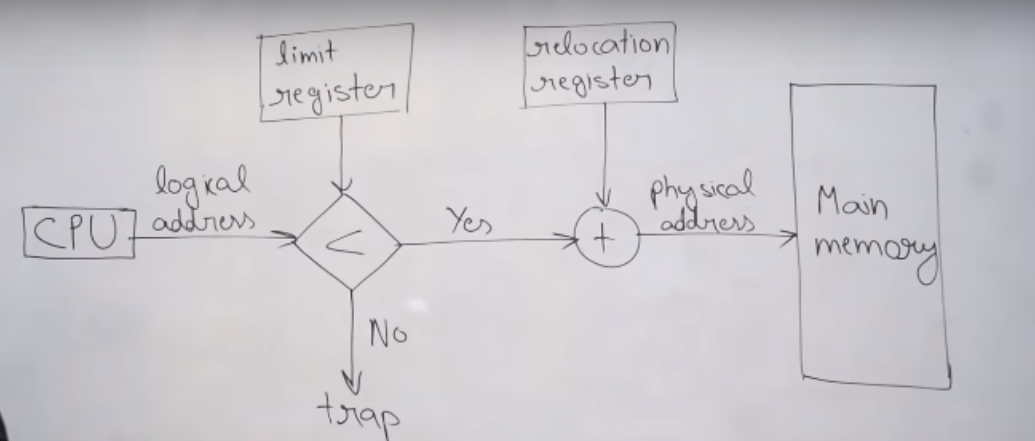 limit
register
relocation
register
CPU
logical
address
<
Yes
+
physical
address
Main
memory
No
trap